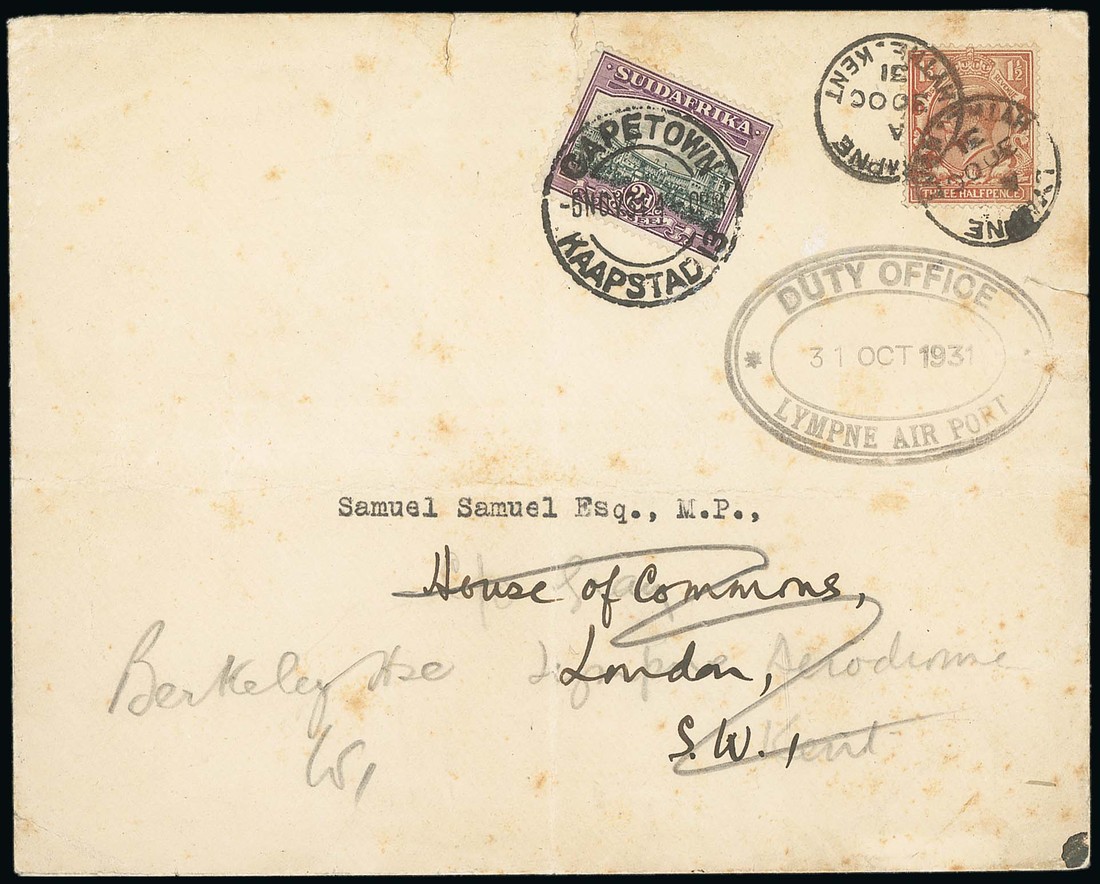 SUIDAFRIKA
CAPETOWN
KAAPSTAD
2D
1½
THREE HALFPENCE
KENT
30 OC
31
A
DUTY OFFICE
31 OCT 1931
LYMPNE AIR PORT
Samuel Samuel Esq., M.P.,
House of Commons,
London,
S.W.1
Berkeley Hse
W1
Aerodrome
Kent